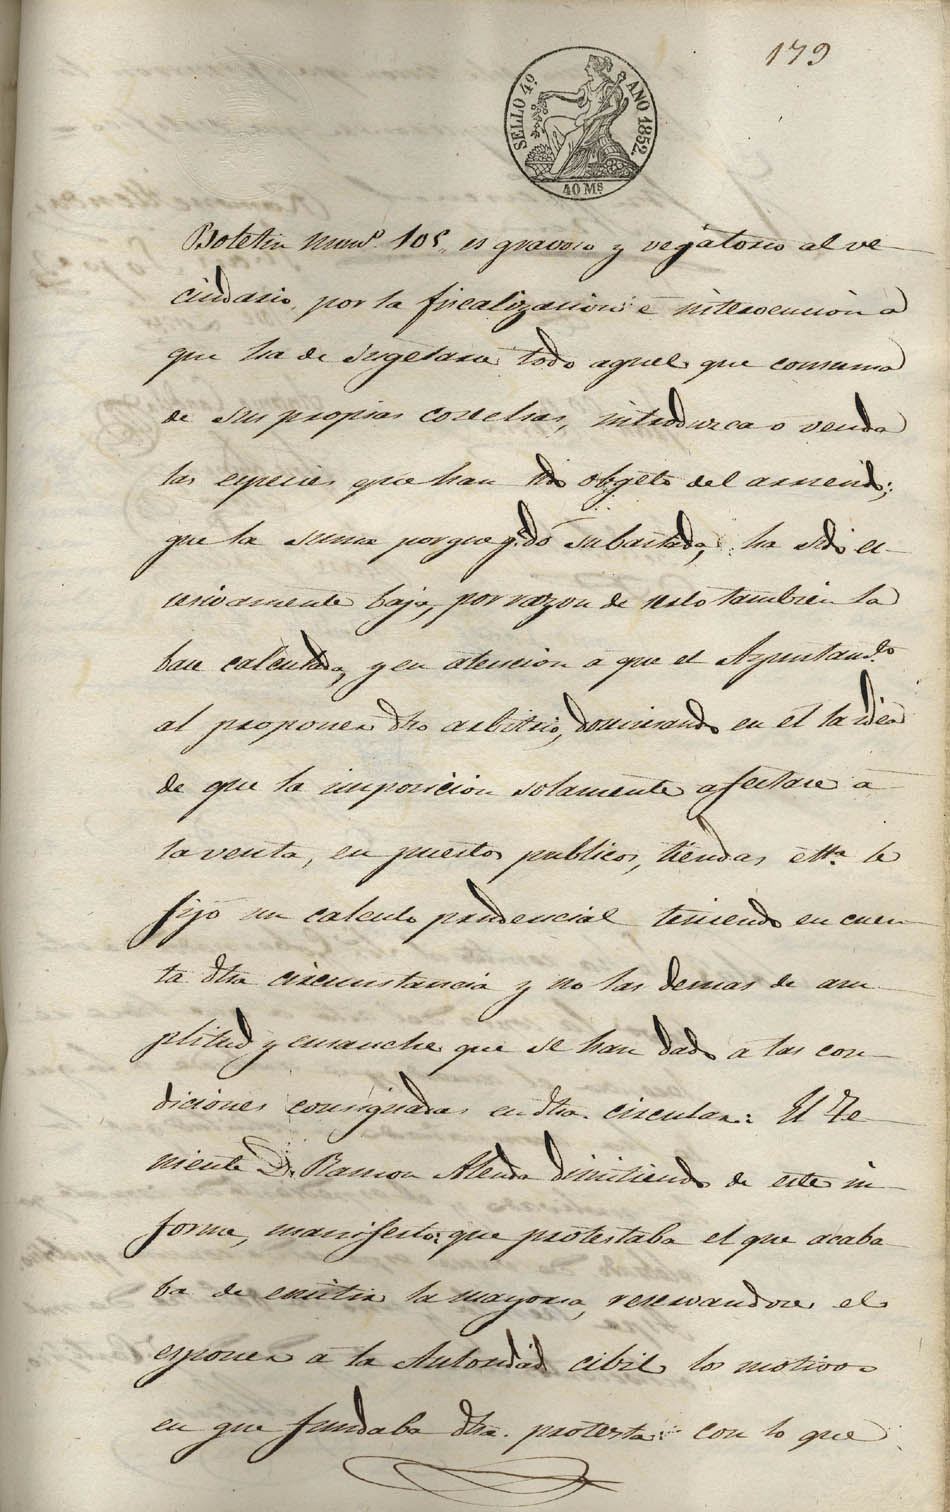 179
SELLO 4º. AÑO 1852.
40 Ms
Boletin numº 105,, es gravoso y vegatorio al ve-
cindario, por la fiscalizacion é intervencion a
que ha de sugetarse todo aquel que consuma
de sus propias cosechas, introduzca o venda
las especies que han sido obgeto del arriendo;
que la suma porque qdó subastada, ha sido ec-
cesivamente baja, por razon de serlo tambien la
base calculada, y en atencion a que el Ayuntamto
al proponer dho arbitrio, dominando en él la idea
de que la imposicion solamente afectare a
la venta, en puestos publicos, tiendas ettª. le
fijó un calculo prudencial teniendo en cuen-
ta dha circunstancia y no las demas de am-
plitud y ensanche que se han dado a las con-
diciones consignadas en dha. circular: El Te-
niente D. Ramon Alenda dimitiendo de este in-
forme, manifestó: que protestaba el que acaba-
ba de emitir la mayoria, reservandose el
esponer a la Autoridad cibil los motivos
en que fundaba dha. protesta: con lo que